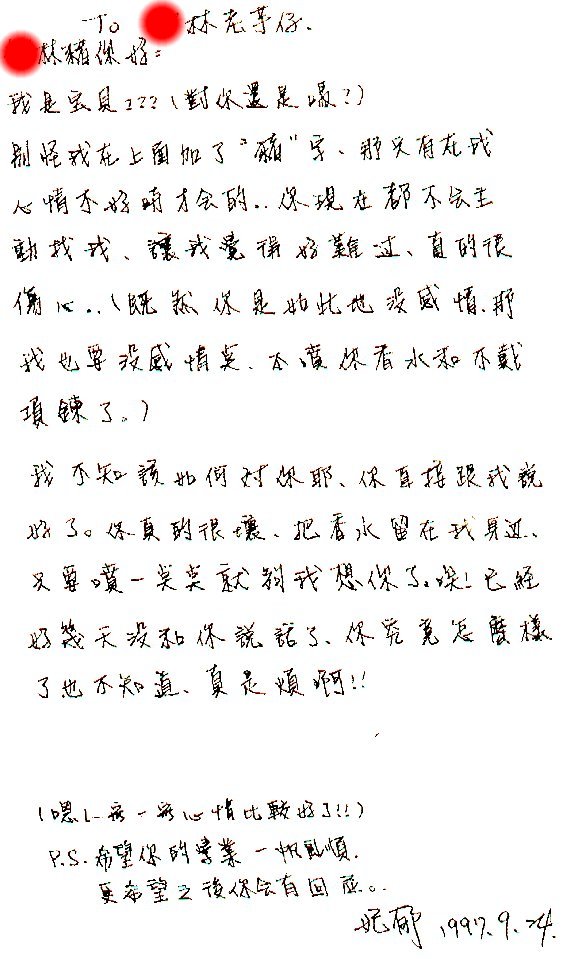 To 林老芋仔.
林豬你好：
我是宝貝???(對你還是嗎?)
別怪我在上面加了"豬"字、那只有在我
心情不好時才会的..你現在都不会主
動找我、讓我覺得好難过、真的很
傷心..(既然你是如此地没感情.那
我也要没感情莫、不噴你香水和不戴
項鍊了。)
我不知該如何对你耶、你直接跟我說
好了。你真的很壞、把香水留在我身边、
只要噴一点点就到我想你了。唉!已經
好幾天没和你說話了、你究竟怎麼樣
了也不知道、真是煩啊!!
(嗯!一吞一吞心情比較好了!!)
P.S.希望你的學業一帆風順.
更希望之後你会有回应。
妮郁 1997.9.24.